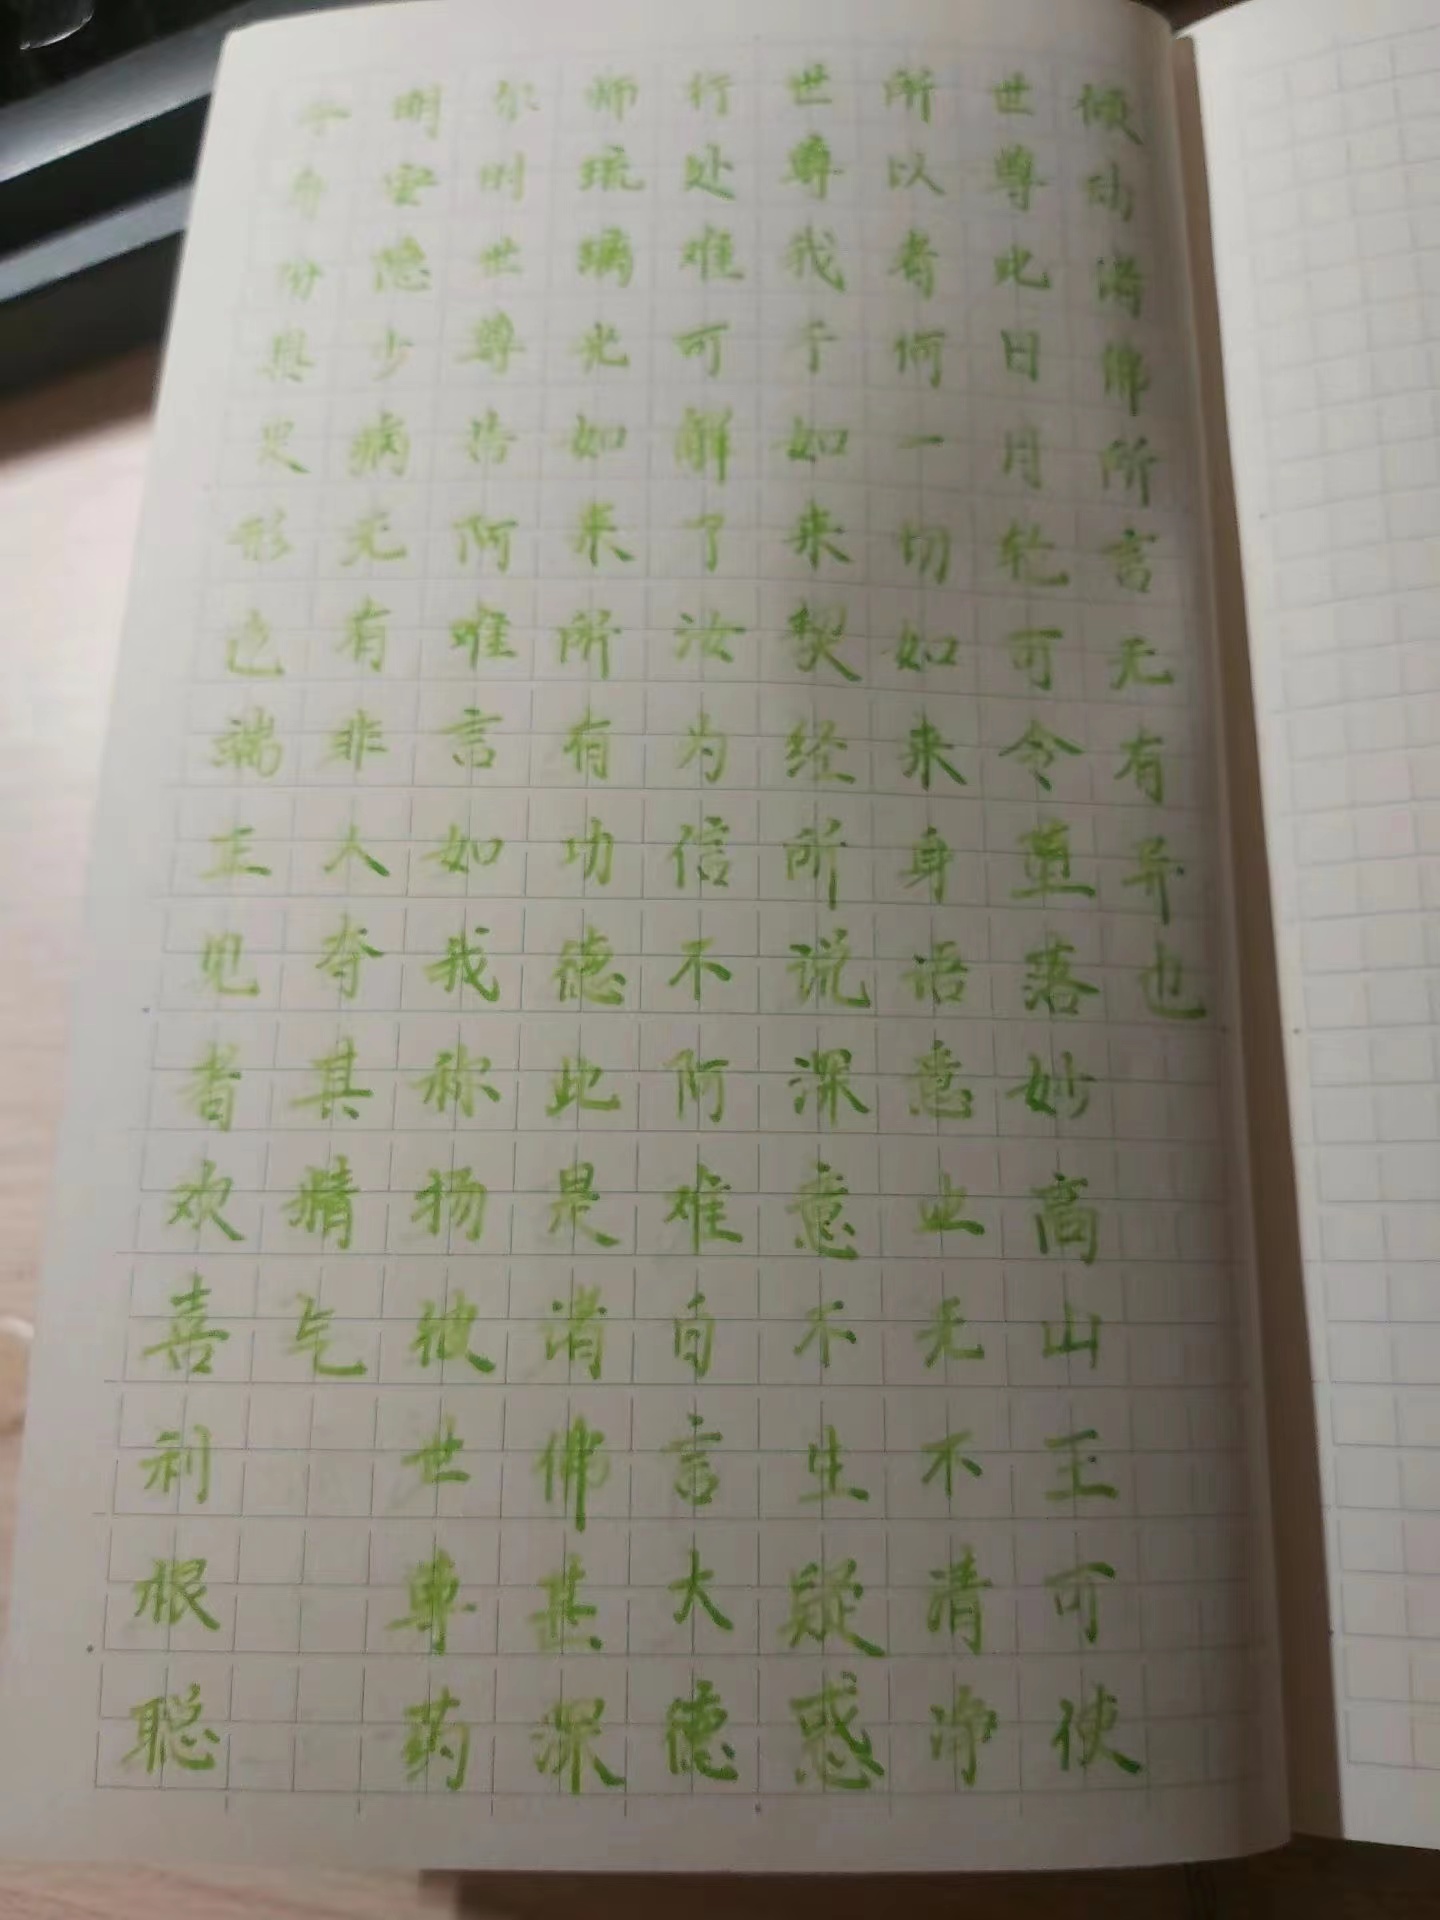 子身份具足形色端正见者欢喜利根聪
明安隐少病无有非人夺其精气
尔时世尊告阿难言如我称扬彼世尊药
师琉璃光如来所有功德此是诸佛甚深
行处难可解了汝为信不阿难白言大德
世尊我于如来契经所说深意不生疑惑
所以者何一切如来身语意业无不清净
世尊此日月轮可令堕落妙高山王可使
倾动诸佛所言无有异也